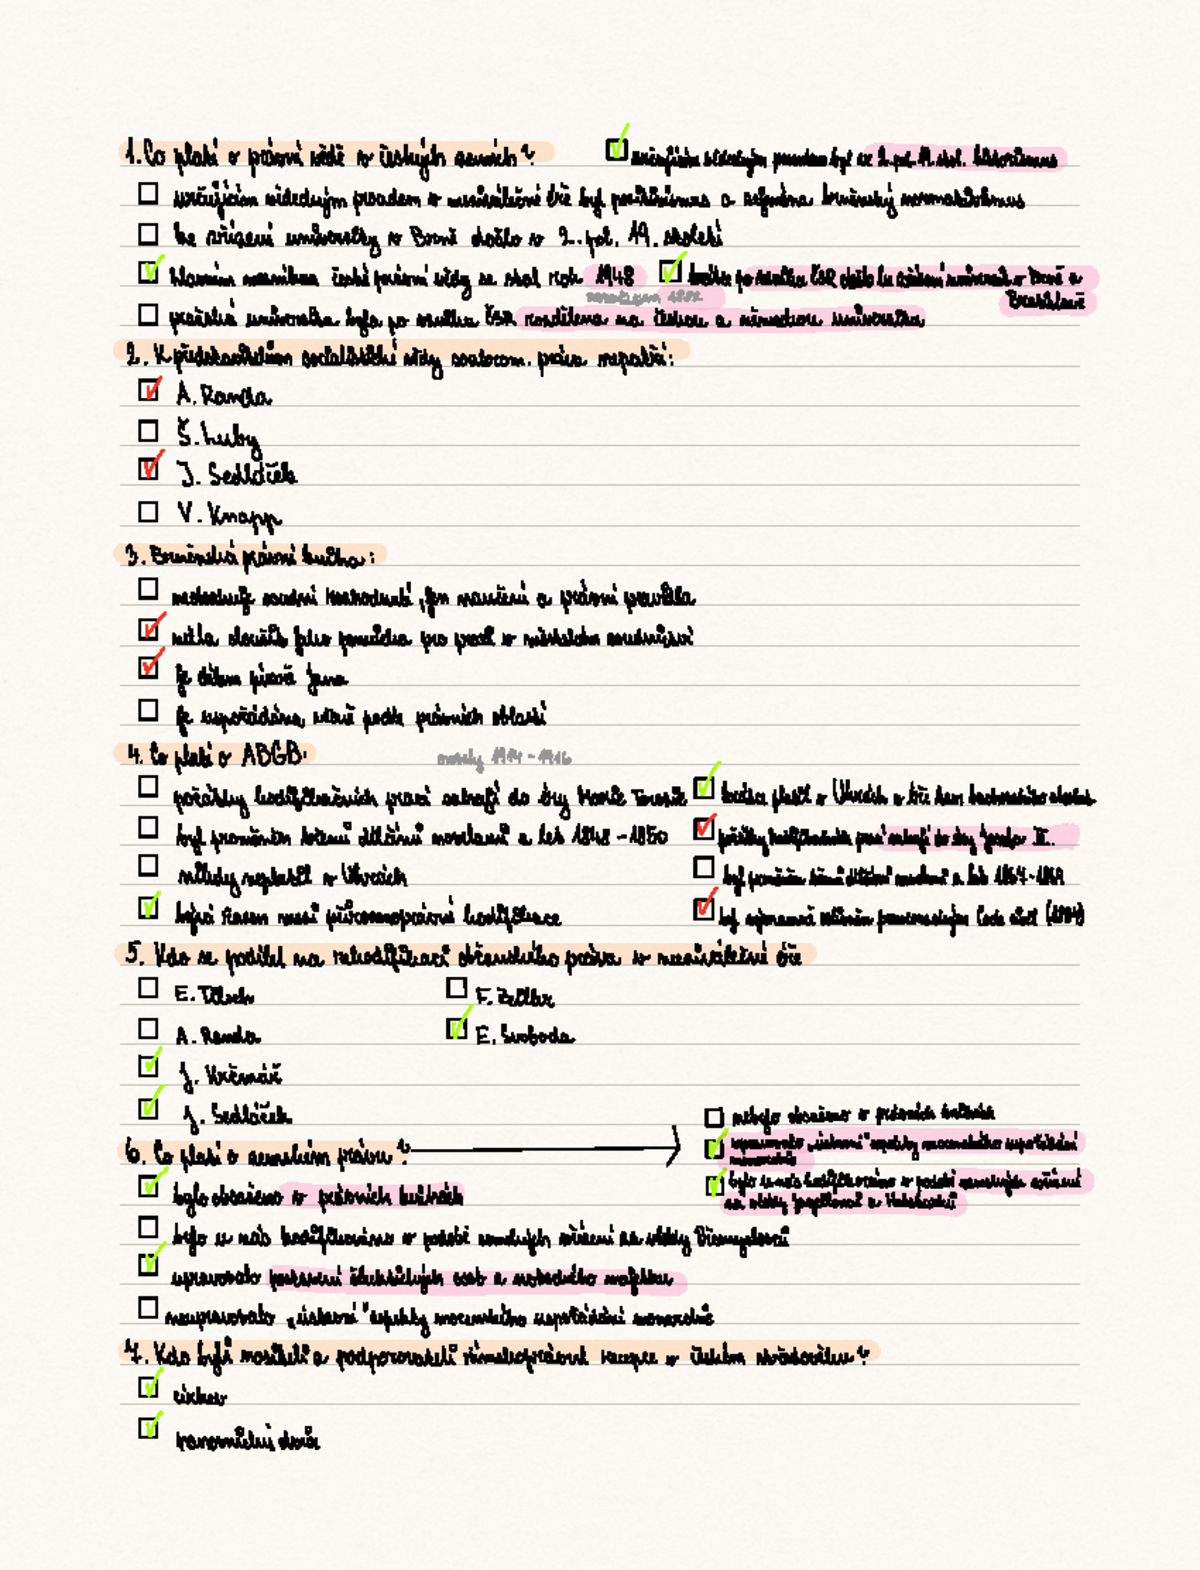 1. Co platí o právní vědě v českých zemích?
určujícím vědeckým proudem byl ve 2. pol. 19. stol. historismus
určujícím vědeckým proudem v meziválečné éře byl pozitivismus a zejména brněnský normativismus
ke zřízení univerzity v Brně došlo v 2. pol. 19. století
hlavním mezníkem české právní vědy se stal rok 1948
krátce po vzniku ČSR došlo ke zřízení univerzit v Brně a Bratislavě
1882
pražská univerzita byla po vzniku ČSR rozdělena na českou a německou univerzitu
2. K představitelům socialistické vědy soukrom. práva nepatří:
A. Randa
Š. Luby
J. Sedláček
V. Knapp
3. Brněnská právní kniha:
neobsahuje soudní rozhodnutí, jen naučení a právní pravidla
měla sloužit jako pomůcka pro praxi v městském soudnictví
je dílem písaře Jana
je uspořádána věcně podle právních oblastí
4. Co platí o ABGB:
novely 1914 - 1916
počátky kodifikačních prací sahají do éry Marie Terezie
krátce platil v Uhrách v éře tzv. bachovského absolut.
byl proměněn třemi dílčími novelami z let 1848 - 1850
počátky kodifikačních prací sahají do éry Josefa II.
nikdy neplatil v Uhrách
byl proměněn třemi dílčími novelami z let 1867-1869
bývá řazen mezi přirozenoprávní kodifikace
byl významně ovlivněn francouzským Code civil (1804)
5. Kdo se podílel na rekodifikaci občanského práva v meziválečné éře
E. Tilsch
F. Zeiller
A. Randa
E. Svoboda
J. Krčmář
J. Sedláček
6. Co platí o zemském právu?
nebylo obsaženo v právních knihách
upravovalo "ústavní" aspekty mocenského uspořádání monarchie
bylo u nás kodifikováno v podobě zemských zřízení za vlády Jagellonců a Habsburků
bylo obsaženo v právních knihách
bylo u nás kodifikováno v podobě zemských zřízení za vlády Přemyslovců
upravovalo postavení šlechtických osob a svobodného majetku
neupravovalo "ústavní" aspekty mocenského uspořádání monarchie
7. Kdo byli nositeli a podporovateli římskoprávní recepce v českém středověku?
církev
panovnický dvůr